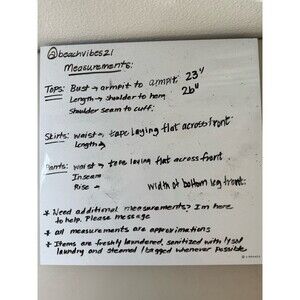 @beachvibes21
Measurements:
Tops: Bust → armpit to armpit: 23"
Length → shoulder to hem: 26"
Shoulder seam to cuff:
Skirts: waist → tape laying flat across front:
Length →
Pants: waist → tape laying flat across front
Inseam
Rise → width of bottom leg front:
* Need additional measurements? I'm here
to help. Please message
* all measurements are approximations
* Items are freshly laundered, sanitized with lysol
laundry and steamed / bagged whenever possible